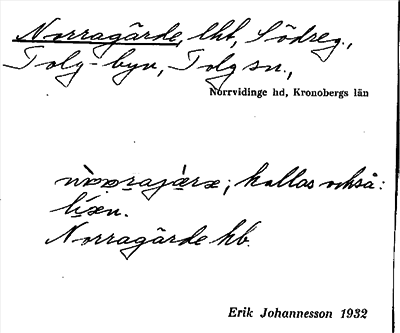 Norragårde, lhb, Södreg.,
Tolg-byn, Tolg sn.,
Norrvidinge hd, Kronobergs län
kallas också:
Norragårde hb.
Erik Johannesson 1932